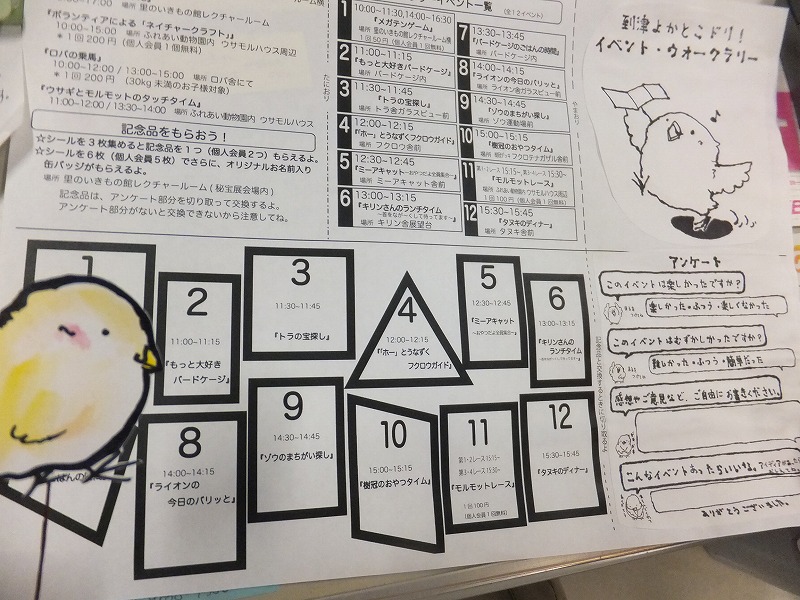 里のいきもの館レクチャールーム
『ボランティアによる「ネイチャークラフト」』
＊1回200円（個人会員1個無料）
場所 ふれあい動物園内 ウサモルハウス周辺
『ロバの乗馬』
10:00～12:00 / 13:00～15:00 場所 ロバ舎にて
＊1回200円（30kg未満のお子様対象）
『ウサギとモルモットのタッチタイム』
11:00～12:00 / 13:30～14:00 場所 ふれあい動物園内 ウサモルハウス
記念品をもらおう！
☆シールを3枚集めると記念品を1つ（個人会員2つ）もらえるよ。
☆シールを6枚（個人会員5枚）でさらに、オリジナルお名前入り
缶バッジがもらえるよ。
場所 里のいきもの館レクチャールーム（秘宝展会場内）
記念品は、アンケート部分を切り取って交換するよ。
アンケート部分がないと交換できないから注意してね。
たにおり
イベント一覧
（全12イベント）
1
10:00～11:30,14:00～16:30
『メガテンゲーム』
場所 里のいきもの館レクチャールーム横
1回50円（個人会員1回無料）
2
11:00～11:15
『もっと大好きバードケージ』
場所 バードケージ内
3
11:30～11:45
『トラの宝探し』
場所 トラ舎ガラスビュー前
4
12:00～12:15
『「ホー」とうなずくフクロウガイド』
場所 フクロウ舎前
5
12:30～12:45
『ミーアキャット～おやつだよ全員集合～』
場所 ミーアキャット舎前
6
13:00～13:15
『キリンさんのランチタイム
～首をなが～くして待ってます～』
場所 キリン舎展望台
7
13:30～13:45
『バードケージのごはんの時間』
場所 バードケージ内
8
14:00～14:15
『ライオンの今日のパリッと』
場所 ライオン舎ガラスビュー前
9
14:30～14:45
『ゾウのまちがい探し』
場所 ゾウ運動場前
10
15:00～15:15
『樹冠のおやつタイム』
11
第1・2レース 15:15～、第3・4レース 15:30～
『モルモットレース』
場所 ふれあい動物園内 ウサモルハウス周辺
1回100円（個人会員1回無料）
12
15:30～15:45
『タヌキのディナー』
場所 タヌキ舎前
やまおり
到津よかとこドリ！
イベント・ウォークラリー
1
2
11:00～11:15
『もっと大好き
バードケージ』
3
11:30～11:45
『トラの宝探し』
4
12:00～12:15
『「ホー」とうなずく
フクロウガイド』
5
12:30～12:45
『ミーアキャット
～おやつだよ全員集合～』
6
13:00～13:15
『キリンさんの
ランチタイム
8
14:00～14:15
『ライオンの
今日のパリッと』
9
14:30～14:45
『ゾウのまちがい探し』
10
15:00～15:15
『樹冠のおやつタイム』
11
第1・2レース 15:15～
第3・4レース 15:30～
『モルモットレース』
1回100円
（個人会員1回無料）
12
15:30～15:45
『タヌキのディナー』
記念品と交換するときに切り取るよ
アンケート
このイベントは楽しかったですか？
楽しかった・ふつう・楽しくなかった
このイベントはむずかしかったですか？
難しかった・ふつう・簡単だった
感想やご意見など、ご自由にお書きください。
こんなイベントあったらいいね。
ありがとうございました。